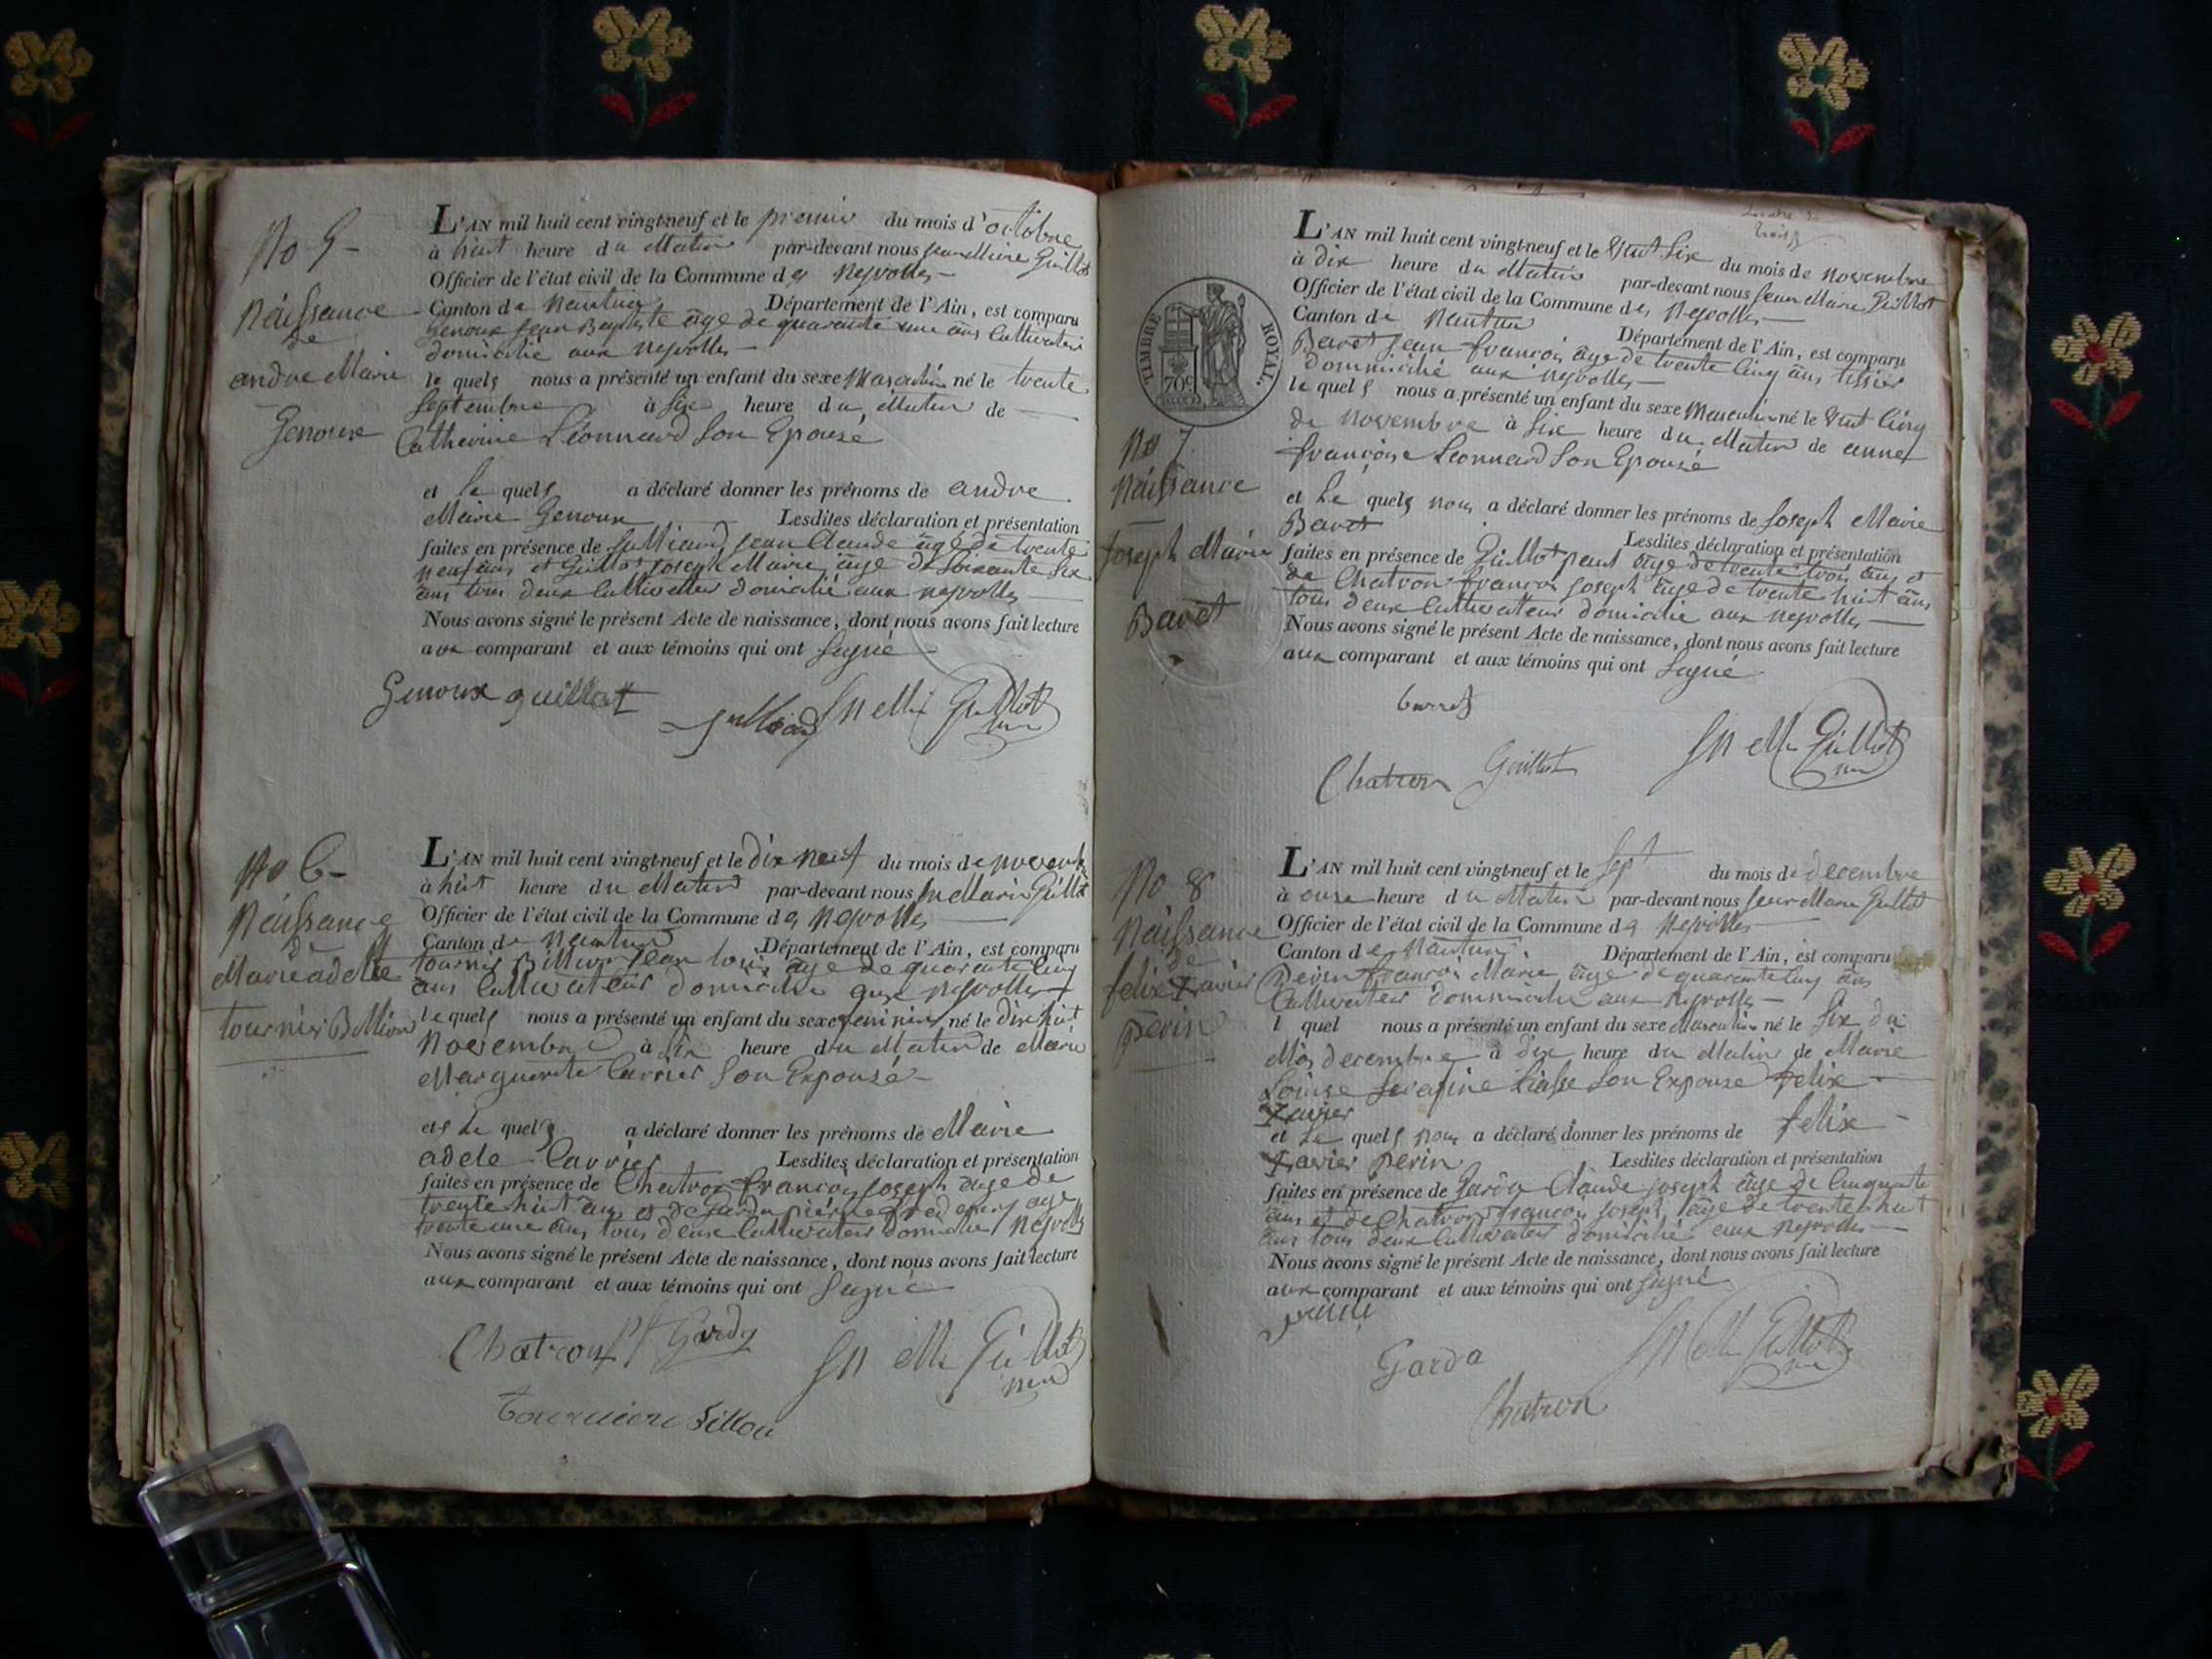 No 5-
Naissance
de
andre Marie
Genoux
L'AN mil huit cent vingt-neuf et le premier du mois d'octobre
à huit heure du Matin par-devant nous jean Marie Guillot
Officier de l'état civil de la Commune des Neyrolles
Canton de Nantua Département de l'Ain, est comparu
Genoux jean Baptiste âge de quarante une ans Cultivateur
domicilié aux neyrolles
le quel nous a présenté un enfant du sexe Masculin né le trente
Septembre à Six heure du Matin de
Catherine Léonnard Son Epouse
et le quel a déclaré donner les prénoms de andre
Marie Genoux Lesdites déclaration et présentation
faites en présence de Julliard jean Claude âge de trente
neuf ans et Guillot joseph Marie âge de Soixante Six
ans tous deux Cultivateur domicilié aux neyrolles
Nous avons signé le présent Acte de naissance, dont nous avons fait lecture
aux comparant et aux témoins qui ont Signé
Genoux guillot Julliard Jn Me Guillot
No 6-
Naissance
de
Marie adele
tournier Billion
L'AN mil huit cent vingt-neuf et le dix neuf du mois de novembre
à huit heure du Matin par-devant nous Jn Marie Guillot
Officier de l'état civil de la Commune des Neyrolles
Canton de Nantua Département de l'Ain, est comparu
tournier Billion jean louis âge de quarante Cinq
ans Cultivateur domicilié aux neyrolles
le quel nous a présenté un enfant du sexe feminin né le dix huit
Novembre à Six heure du Matin de Marie
Marguerite Carrier Son Expouse
et Le quel a déclaré donner les prénoms de Marie
adele Carrier Lesdites déclaration et présentation
faites en présence de Chatron françois joseph âge de
trente huit ans et de
trente une ans tous deux Cultivateur domicilié Neyrolles
Nous avons signé le présent Acte de naissance, dont nous avons fait lecture
aux comparant et aux témoins qui ont Signé
Chatron Jn Me Guillot
Tournier Billion
L'AN mil huit cent vingt-neuf et le Vint Six du mois de novembre
à dix heure du Matin par-devant nous jean Marie Guillot
Officier de l'état civil de la Commune des Neyrolles
Canton de Nantua Département de l'Ain, est comparu
TIMBRE ROYAL
70c
Baret jean françois âge de trente Cinq ans tissier
dommicilié aux neyrolles
le quel nous a présenté un enfant du sexe Masculin né le Vint Cinq
de novembre à Six heure du Matin de anne
françoise Léonnard Son Epouse
No 7
Naissance
Joseph Marie
Baret
et Le quel nous a déclaré donner les prénoms de Joseph Marie
Baret Lesdites déclaration et présentation
faites en présence de Guillot paul âge de trente trois ans et
de Chatron françois joseph âge de trente huit ans
tous deux Cultivateur domicilié aux neyrolles
Nous avons signé le présent Acte de naissance, dont nous avons fait lecture
aux comparant et aux témoins qui ont Signé
barret
Chatron Guillot Jn Me Guillot
No 8
Naissance
de
felix Xavier
perin
L'AN mil huit cent vingt-neuf et le Sept du mois de decembre
à onze heure du Matin par-devant nous jean Marie Guillot
Officier de l'état civil de la Commune des Neyrolles
Canton de Nantua Département de l'Ain, est comparu
Perin françois Marie âge de quarante Cinq ans
Cultivateur dommicilié aux neyrolles
l quel nous a présenté un enfant du sexe Masculin né le Six du
Mois decembre à dix heure du Matin de Marie
Louise Son Expouse felix
Xavier
et Le quel nous a déclaré donner les prénoms de felix
Xavier perin Lesdites déclaration et présentation
faites en présence de Garda Claude joseph âge de Cinquante
ans et de Chatron françois joseph âge de trente huit
ans tous deux Cultivateur domicilié aux Neyrolles
Nous avons signé le présent Acte de naissance, dont nous avons fait lecture
aux comparant et aux témoins qui ont Signé
Garda Jn Me Guillot
Chatron